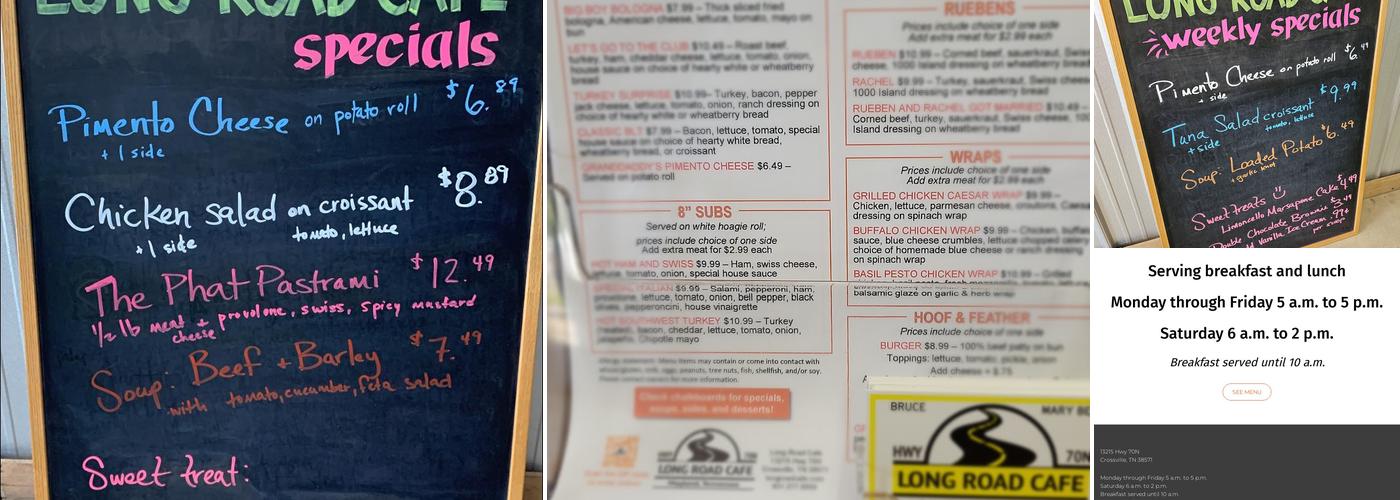 LONG ROAD CAFE
specials
Pimento Cheese on potato roll $6.89
+ 1 side
Chicken salad on croissant $8.89
+1 side tomato, lettuce
The Phat Pastrami $12.49
1/2 lb meat + provolone, swiss, spicy mustard
cheese
Soup: Beef + Barley $7.49
with tomato, cucumber, feta salad
Sweet treat:
BIG BOY BOLOGNA $7.99 – Thick sliced fried
bologna, American cheese, lettuce, tomato, mayo on
bun
LET'S GO TO THE CLUB $10.49 – Roast beef,
turkey, ham, cheddar cheese, lettuce, tomato, onion,
house sauce on choice of hearty white or wheatberry
bread
TURKEY SURPRISE $10.99– Turkey, bacon, pepper
jack cheese, lettuce, tomato, onion, ranch dressing on
choice of hearty white or wheatberry bread
CLASSIC BLT $7.99 – Bacon, lettuce, tomato, special
house sauce on choice of hearty white bread,
wheatberry bread, or croissant
GRANDDADDY'S PIMENTO CHEESE $6.49 –
Served on potato roll
8" SUBS
Served on white hoagie roll;
prices include choice of one side
Add extra meat for $2.99 each
HOT HAM AND SWISS $9.99 – Ham, swiss cheese,
lettuce, tomato, onion, special house sauce
SPECIAL ITALIAN $9.99 – Salami, pepperoni, ham,
provolone, lettuce, tomato, onion, bell pepper, black
olives, pepperoncini, house vinaigrette
HOT SOUTHWEST TURKEY $10.99 – Turkey
bacon, cheddar, lettuce, tomato, onion,
Chipotle mayo
Allergy statement: Menu items may contain or come into contact with
wheat/gluten, milk, eggs, peanuts, tree nuts, fish, shellfish, and/or soy.
Please contact owners for more information.
Check chalkboards for specials,
soups, sides, and desserts!
LONG ROAD CAFE
Long Road Cafe
RUEBENS
Prices include choice of one side
Add extra meat for $2.99 each
RUEBEN $10.99 – Corned beef, sauerkraut, Swiss
cheese, 1000 Island dressing on wheatberry bread
RACHEL $9.99 – Turkey, sauerkraut, Swiss cheese,
1000 Island dressing on wheatberry bread
RUEBEN AND RACHEL GOT MARRIED $10.49 –
Corned beef, turkey, sauerkraut, Swiss cheese, 1000
Island dressing on wheatberry bread
WRAPS
Prices include choice of one side
Add extra meat for $2.99 each
GRILLED CHICKEN CAESAR WRAP $9.99 –
Chicken, lettuce, parmesan cheese, croutons, Caesar
dressing on spinach wrap
BUFFALO CHICKEN WRAP $9.99 – Chicken, buffalo
sauce, blue cheese crumbles, lettuce, chopped celery
choice of homemade blue cheese or ranch dressing
on spinach wrap
BASIL PESTO CHICKEN WRAP $10.99 – Grilled
balsamic glaze on garlic & herb wrap
HOOF & FEATHER
Prices include choice of one side
BURGER $8.99 – 100% beef patty on bun
Toppings: lettuce, tomato, pickle, onion
Add cheese + $.75
BRUCE
MARY BO
HWY
70N
LONG ROAD CAFE
LONG ROAD CAFE
weekly specials
Pimento Cheese on potato roll $6.49
+ side
Tuna Salad croissant $9.99
+ side tomato, lettuce
Soup: Loaded Potato $6.49
+ garlic knot
Sweet treats
Limoncello Marscapone Cake $4.99
Double Chocolate Brownie $3.49
Vanilla Ice Cream .99¢
per scoop
Serving breakfast and lunch
Monday through Friday 5 a.m. to 5 p.m.
Saturday 6 a.m. to 2 p.m.
Breakfast served until 10 a.m.
SEE MENU
13215 Hwy 70N
Crossville, TN 38571
Monday through Friday 5 a.m. to 5 p.m.
Saturday 6 a.m. to 2 p.m.
Breakfast served until 10 a.m.